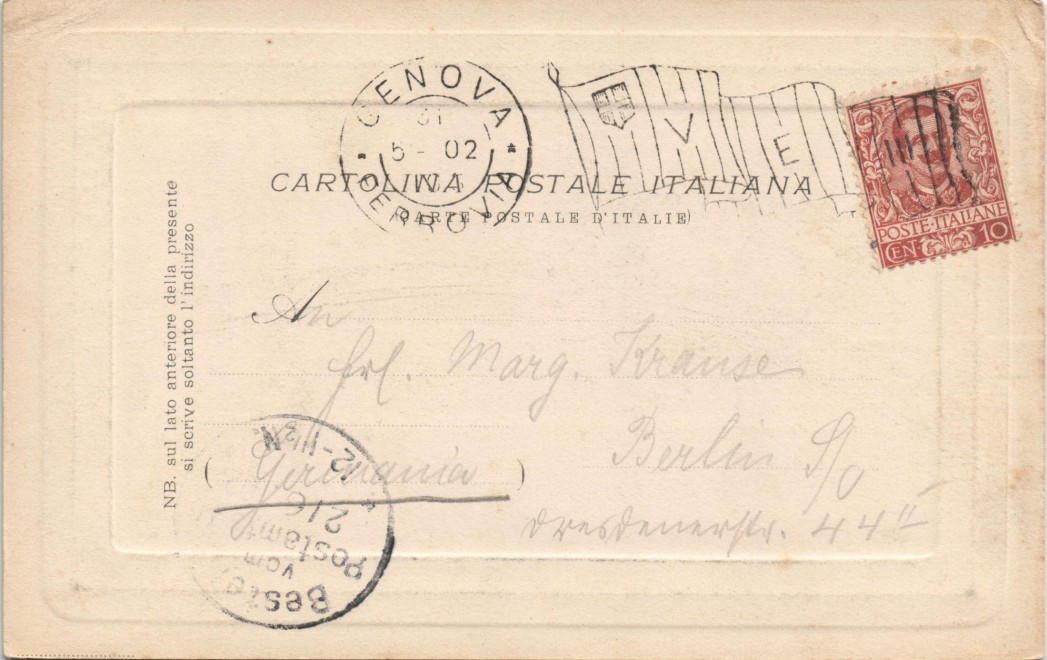 GENOVA
31
5 - 02
FERROVIA
V E
III
CARTOLINA POSTALE ITALIANA
(CARTE POSTALE D'ITALIE)
POSTE·ITALIANE
CEN 10
NB. sul lato anteriore della presente
si scrive soltanto l'indirizzo
An
Frl. Marg. Krause
Berlin S/O
(Germania)
Dresdenerstr. 44 II
Postamt
vom
2/6